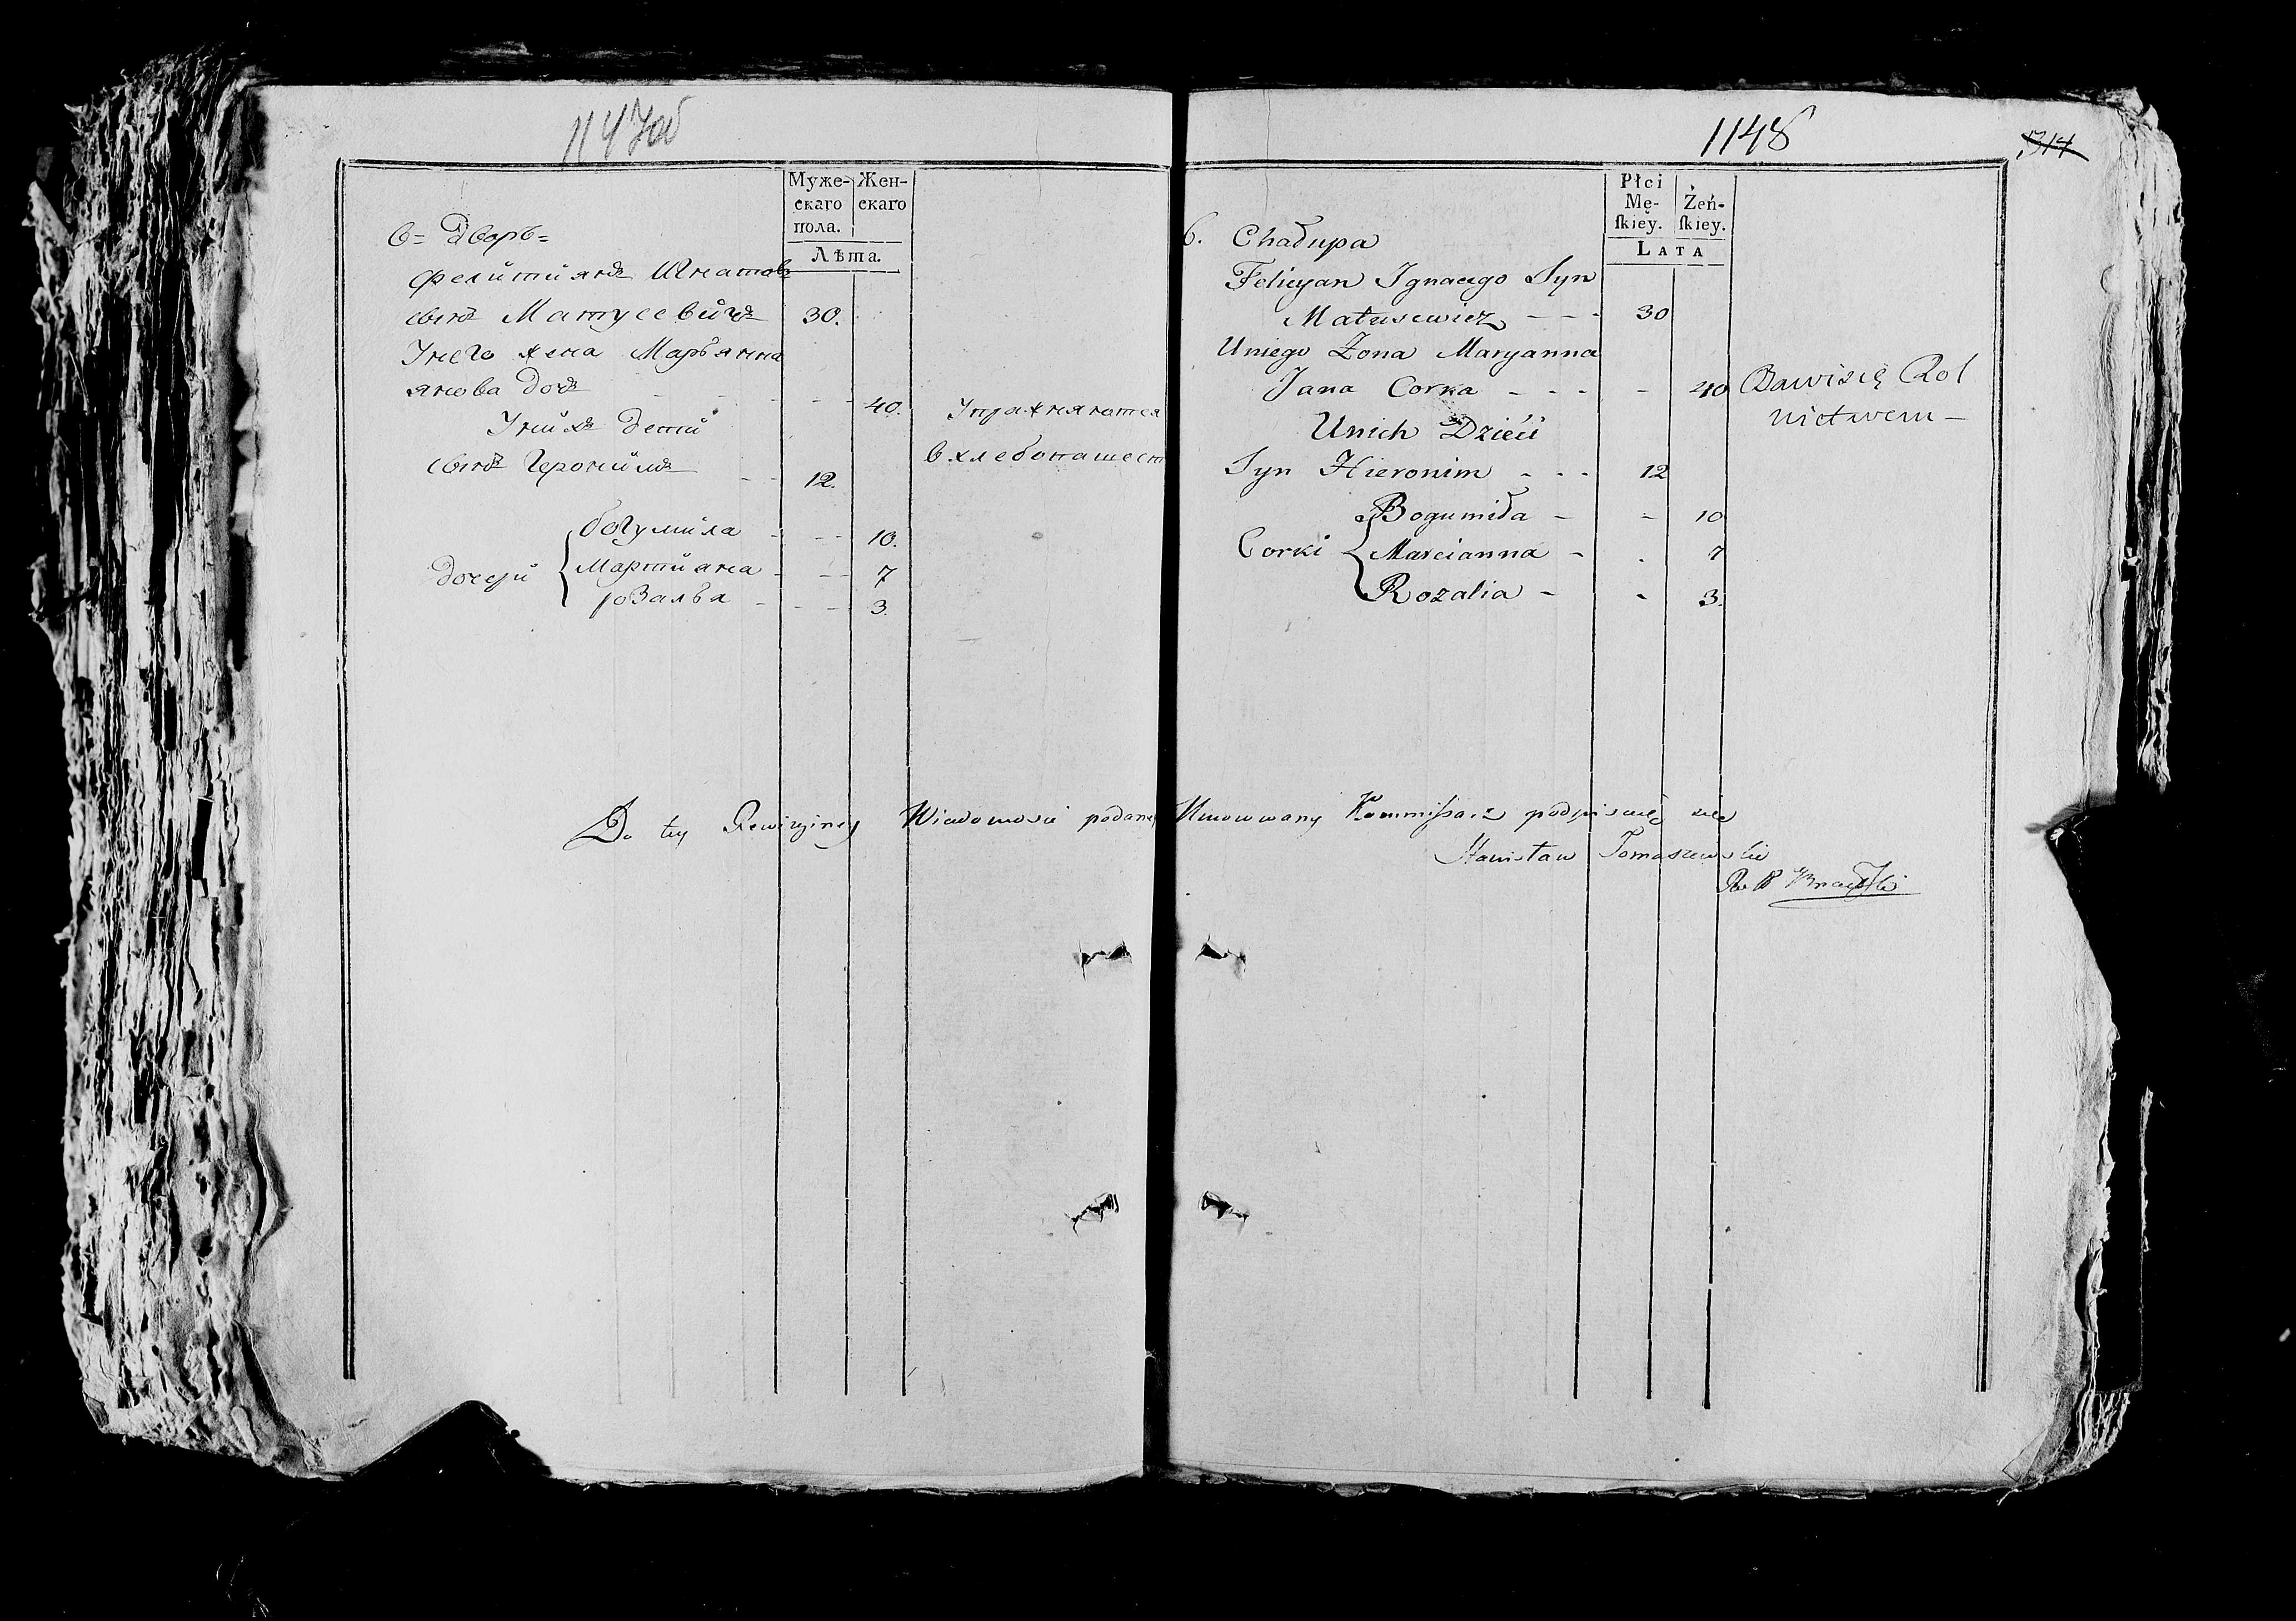 1147об
Муже-
скаго
пола.
Жен-
скаго
Лѣта.
6= Дворъ=
Фелитиянъ Игнатовъ
сынъ Матусевичъ 30.
Унего жена Марьянна
янова дочъ - - - - 40.
Упражняются
Унихъ дети
в хлебопашест
сынъ Героним - - 12.
богумила - - - 10.
дочери { Мартиана - - - 7
розалья - - - 3.
1148
314
Płci
Mę-
ſkiey.
Żeń-
ſkiey.
LATA
6. Chałupa
Felicyan Ignacego Syn
Matusewicz - - - 30
Uniego Żona Maryanna
Jana Corka - - - - 40
Bawi się Rol
nictwem -
Unich Dzieci
Syn Hieronim - - - 12
Bogumiła - - 10
Corki { Marcianna - . 7
Rozalia - - 3.
Do tey Rewizyiney Wiadomości podaney Umocowany Kommissarz podpisuię się
Stanisław Tomaszewski